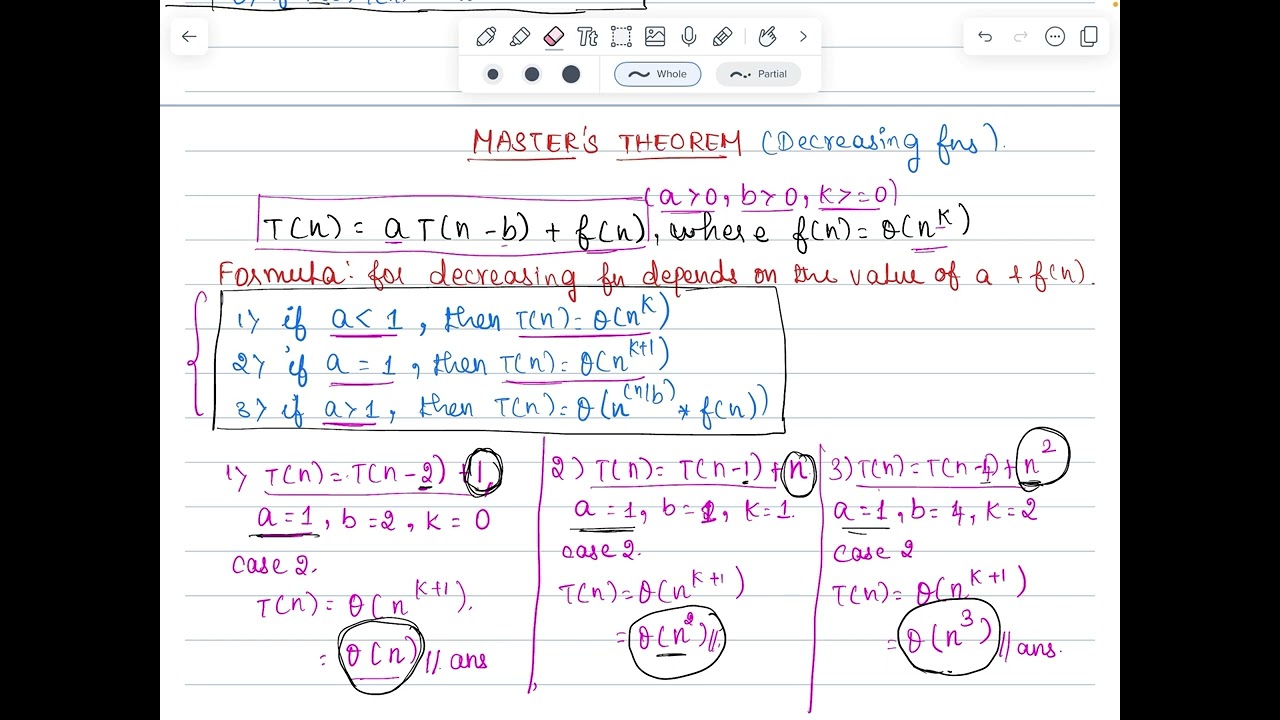 Whole
Partial
MASTER'S THEOREM (Decreasing fns).
(a>0, b>0, k>=0)
T(n) = a T(n-b) + f(n), where f(n) = θ(n^k)
Formula: for decreasing fn depends on the value of a + f(n).
1> if a < 1, then T(n) = θ(n^k)
2> if a = 1, then T(n) = θ(n^{k+1})
3> if a>1, then T(n) = θ(n^{(n/b)} * f(n))
1) T(n) = T(n-2) + 1
a=1, b=2, k=0
case 2.
T(n) = θ(n^{k+1}).
= θ(n) // ans
2) T(n) = T(n-1) + n
a=1, b=1, k=1.
case 2.
T(n) = θ(n^{k+1})
= θ(n^2) //
3) T(n) = T(n-4) + n^2
a=1, b=4, k=2
case 2
T(n) = θ(n^{k+1})
= θ(n^3) // ans.